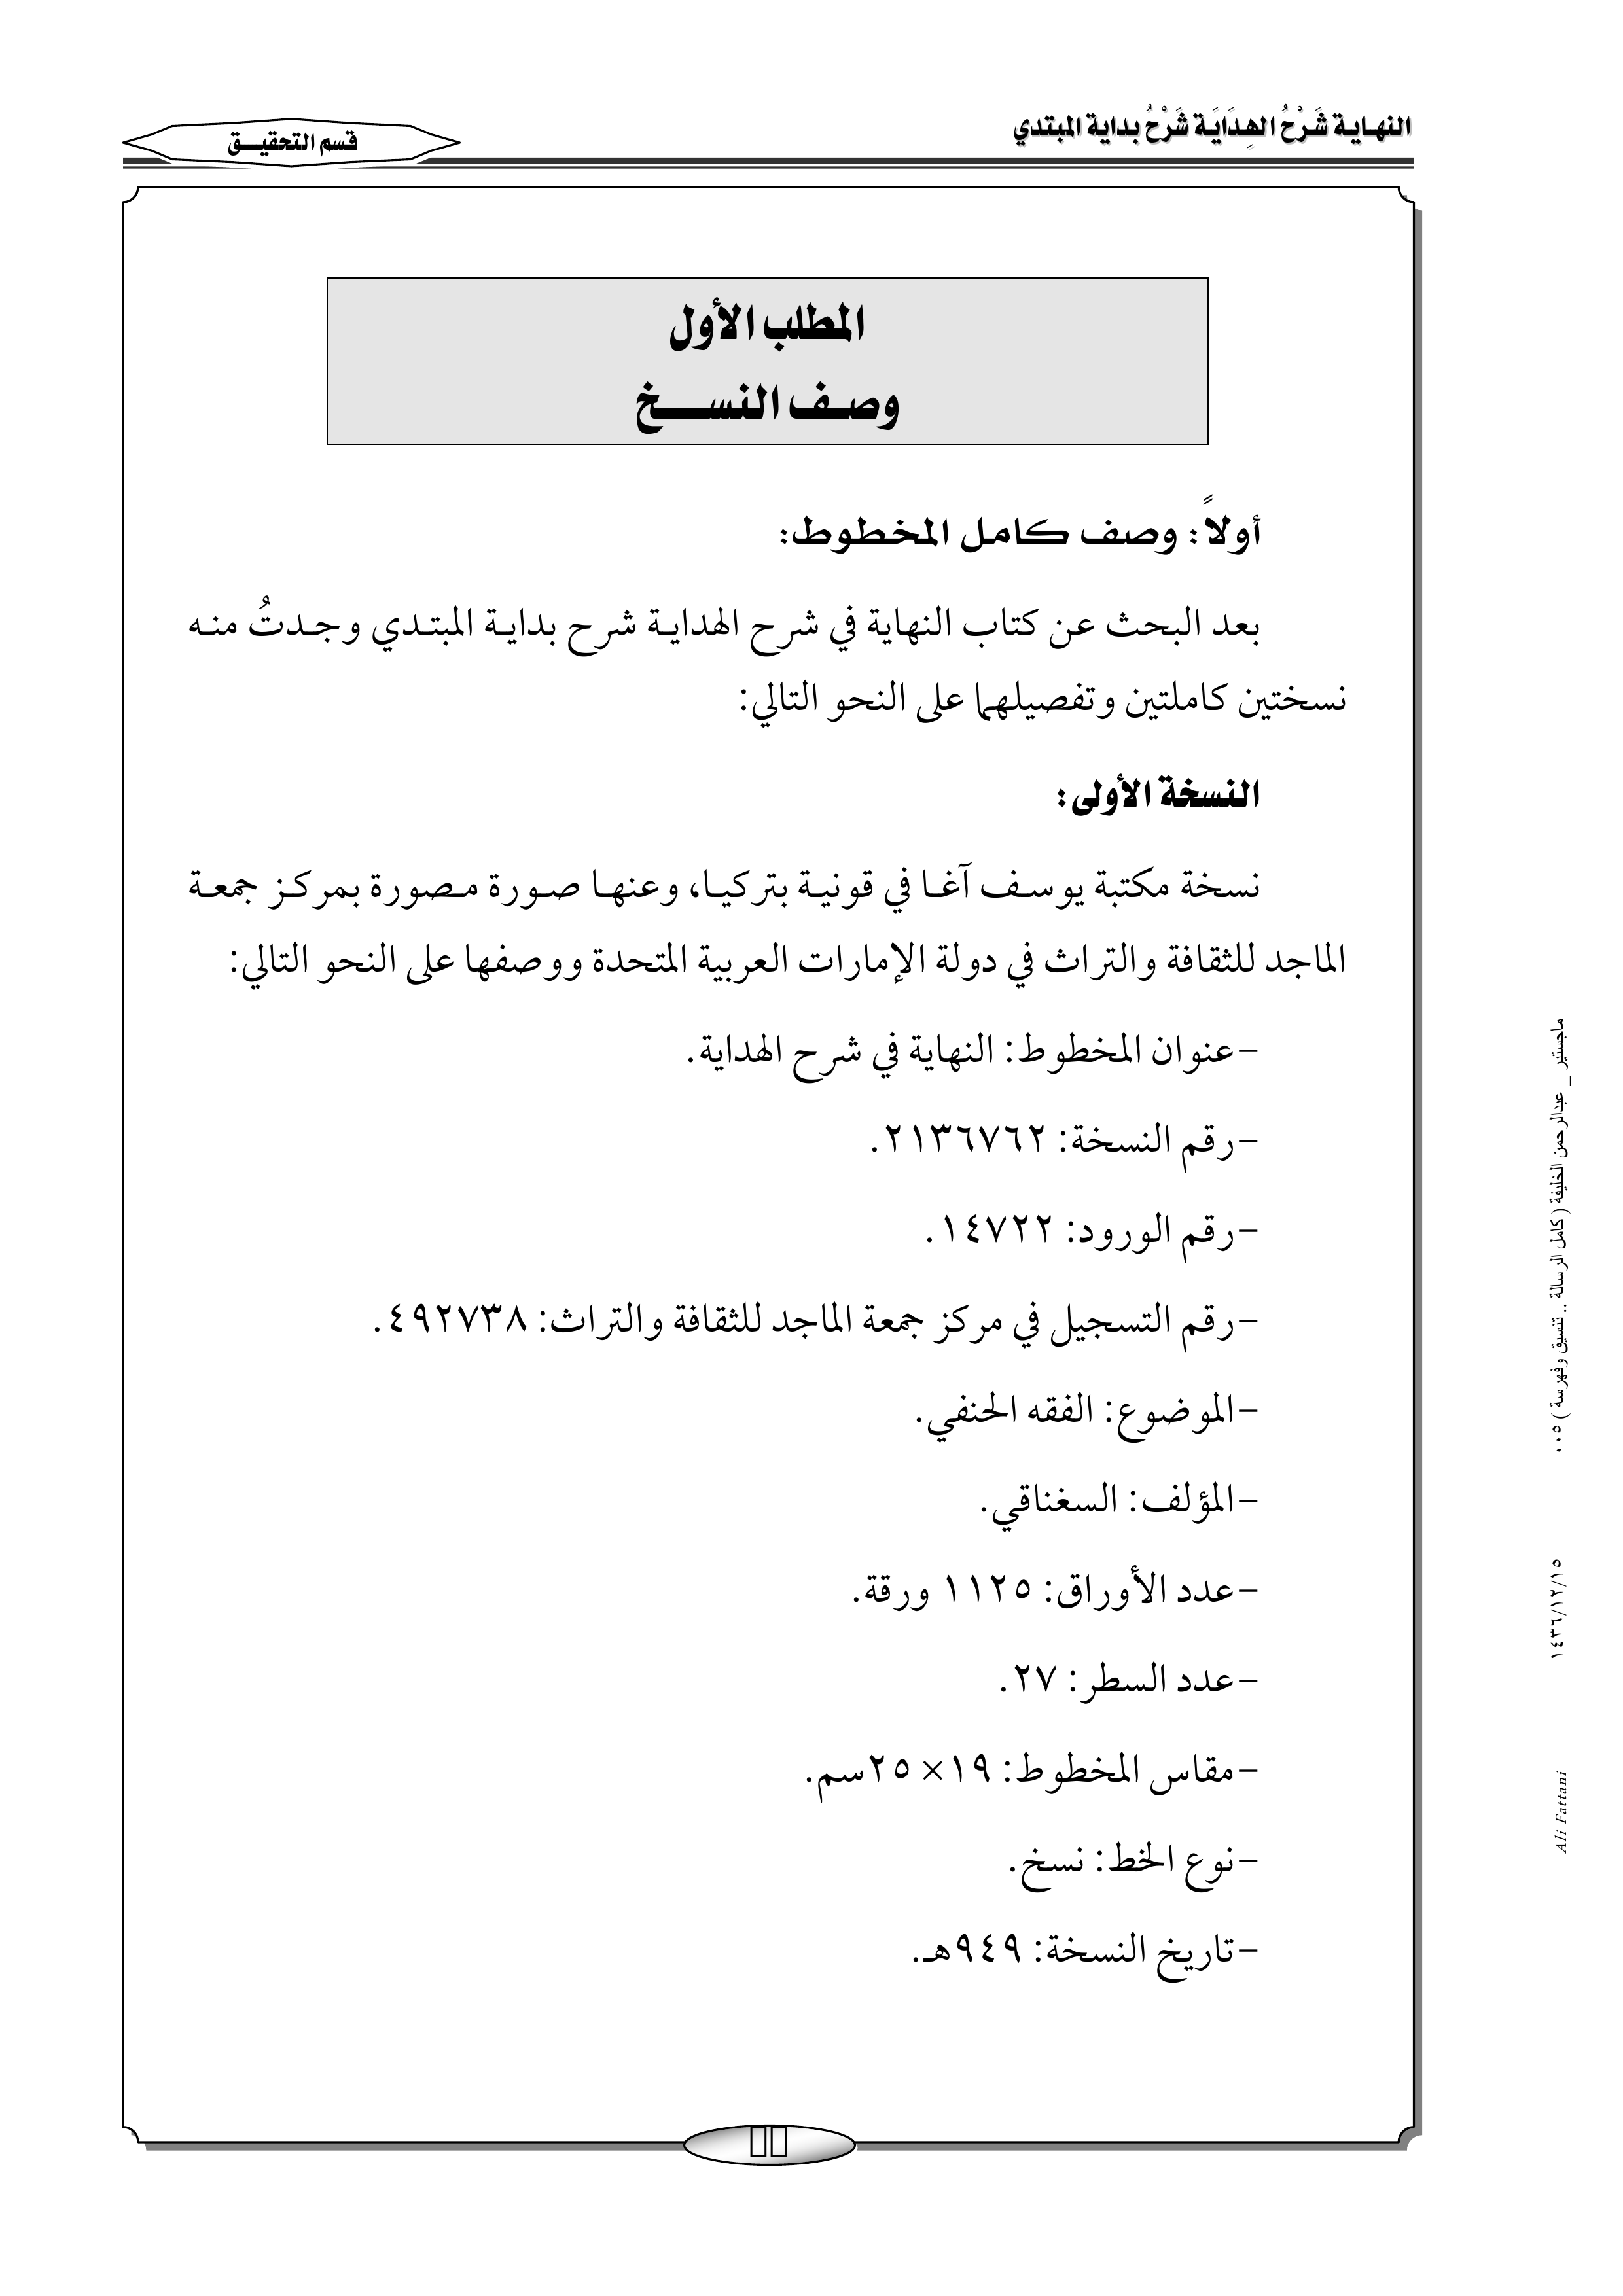 النهـايـة شَـرْحُ الهِـدَايَـة شَرْحُ بداية المبتدي
قسم التحقيـــق
المطلب الأول
وصـف النســـخ
أولاً: وصف كامل المخطوط:
بعد البحث عن كتاب النهاية في شرح الهدايـة شرح بدايـة المبتـدي وجـدتُ منـه
نسختين كاملتين وتفصيلهما على النحو التالي:
النسخة الأولى:
نسخة مكتبة يوسـف آغـا في قونيـة بتركيـا، وعنهـا صـورة مـصورة بمركـز جمعـة
الماجد للثقافة والتراث في دولة الإمارات العربية المتحدة ووصفها على النحو التالي:
-عنوان المخطوط: النهاية في شرح الهداية.
-رقم النسخة: ٢١٣٦٧٦٢.
-رقم الورود: ١٤٧٢٢.
-رقم التسجيل في مركز جمعة الماجد للثقافة والتراث: ٤٩٢٧٣٨.
-الموضوع: الفقه الحنفي.
-المؤلف: السغناقي.
-عدد الأوراق: ١١٢٥ ورقة.
-عدد السطر: ٢٧.
-مقاس المخطوط: ١٩×٢٥سم.
-نوع الخط: نسخ.
-تاريخ النسخة: ٩٤٩هـ.
ماجستير _ عبدالرحمن الخليفة ( كامل الرسالة .. تنسيق وفهرسة ) ٠٠٥
١٤٣٦/١٢/١٥
Ali Fattani